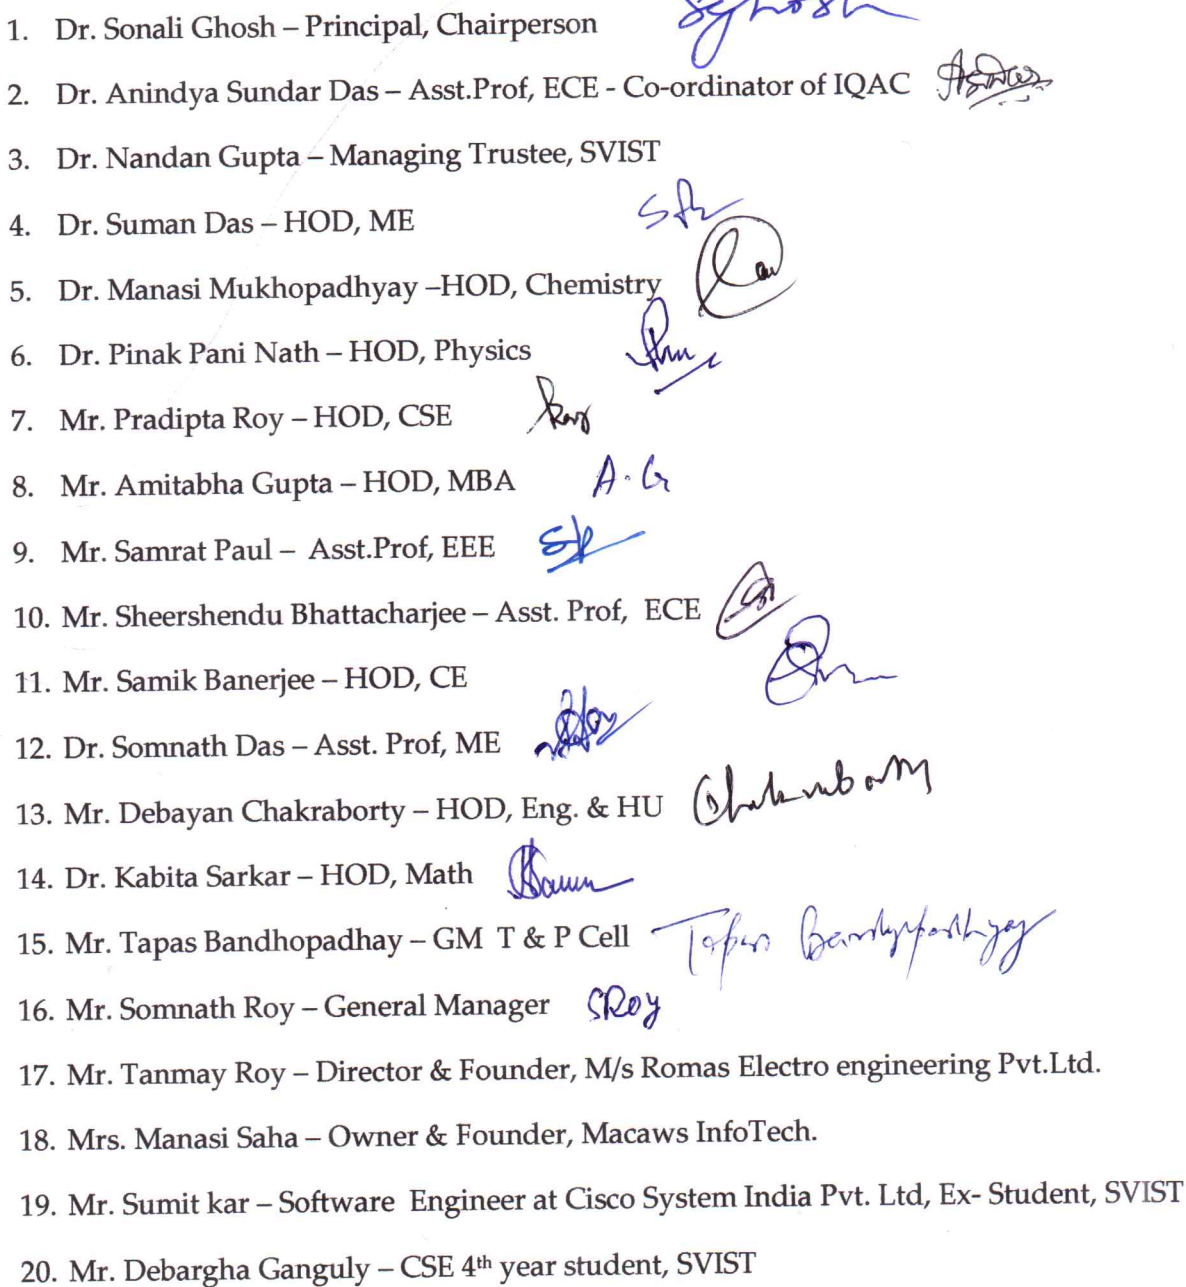 1. Dr. Sonali Ghosh – Principal, Chairperson SGhosh
2. Dr. Anindya Sundar Das – Asst.Prof, ECE - Co-ordinator of IQAC
3. Dr. Nandan Gupta – Managing Trustee, SVIST
4. Dr. Suman Das – HOD, ME
5. Dr. Manasi Mukhopadhyay –HOD, Chemistry
6. Dr. Pinak Pani Nath – HOD, Physics
7. Mr. Pradipta Roy – HOD, CSE
8. Mr. Amitabha Gupta – HOD, MBA A.G
9. Mr. Samrat Paul – Asst.Prof, EEE
10. Mr. Sheershendu Bhattacharjee – Asst. Prof, ECE
11. Mr. Samik Banerjee – HOD, CE
12. Dr. Somnath Das – Asst. Prof, ME
13. Mr. Debayan Chakraborty – HOD, Eng. & HU
14. Dr. Kabita Sarkar – HOD, Math
15. Mr. Tapas Bandhopadhay – GM T & P Cell Tapas Bandyopadhyay
16. Mr. Somnath Roy – General Manager SRoy
17. Mr. Tanmay Roy – Director & Founder, M/s Romas Electro engineering Pvt.Ltd.
18. Mrs. Manasi Saha – Owner & Founder, Macaws InfoTech.
19. Mr. Sumit kar – Software Engineer at Cisco System India Pvt. Ltd, Ex- Student, SVIST
20. Mr. Debargha Ganguly – CSE 4th year student, SVIST